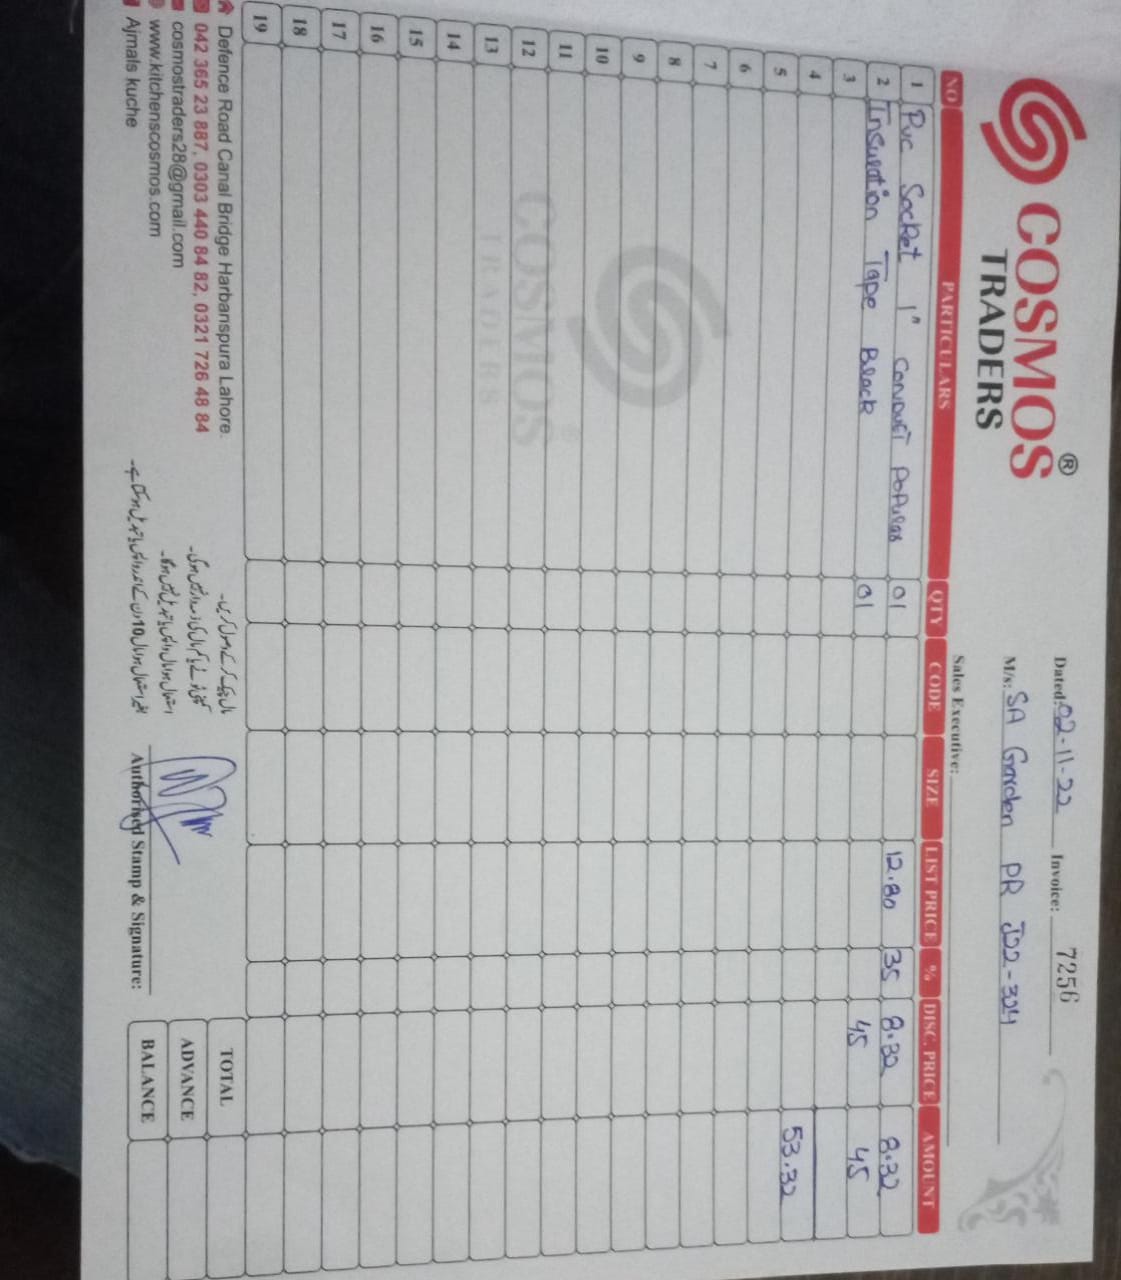 COSMOS ®
TRADERS
Dated: 02-11-22 Invoice: 7256
M/s: SA Garden PR J22-324
Sales Executive:
NO PARTICULARS QTY CODE SIZE LIST PRICE % DISC. PRICE AMOUNT
1 Pvc Socket 1" Conduct Popular 01 12.80 35 8.32 8.32
2 Insulation Tape Black 01 45 45
3
4
5 53.32
6
7
8
9
10
11
12
13
14
15
16
17
18
19
COSMOS
TRADERS
Defence Road Canal Bridge Harbanspura Lahore.
042 365 23 887, 0303 440 84 82, 0321 726 48 84
cosmostraders28@gmail.com
www.kitchenscosmos.com
Ajmals kuche
مال چیک کر کے وصول کریں۔
کمپنی ٹوٹے یا کم مال کی ذمہ دار نہیں ہوگی۔
استعمال ہوا مال واپس یا تبدیل نہیں ہوگا۔
بغیر استعمال ہوا مال 10 دن کے اندر واپس یا تبدیل ہوسکتا ہے۔
Authorised Stamp & Signature:
TOTAL
ADVANCE
BALANCE